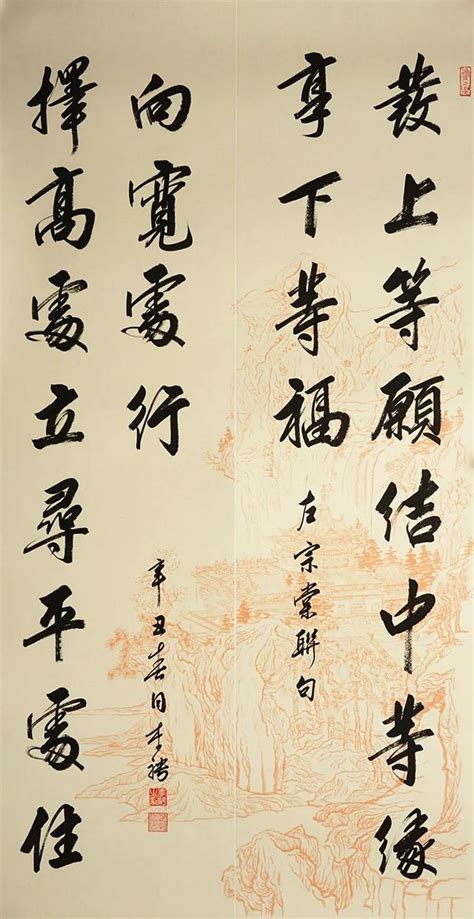 發上等願結中等緣
享下等福
左宗棠聯句
擇高處立尋平處住
向寬處行
辛丑春日李